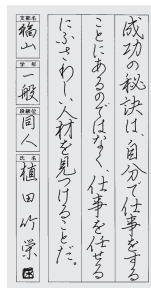 成功の秘訣は、自分で仕事をする
ことにあるのではなく、仕事を任せる
にふさわしい人材を見つけることだ。
支部名
福山
学年
一般
段級位
同人
氏名
植田竹栄